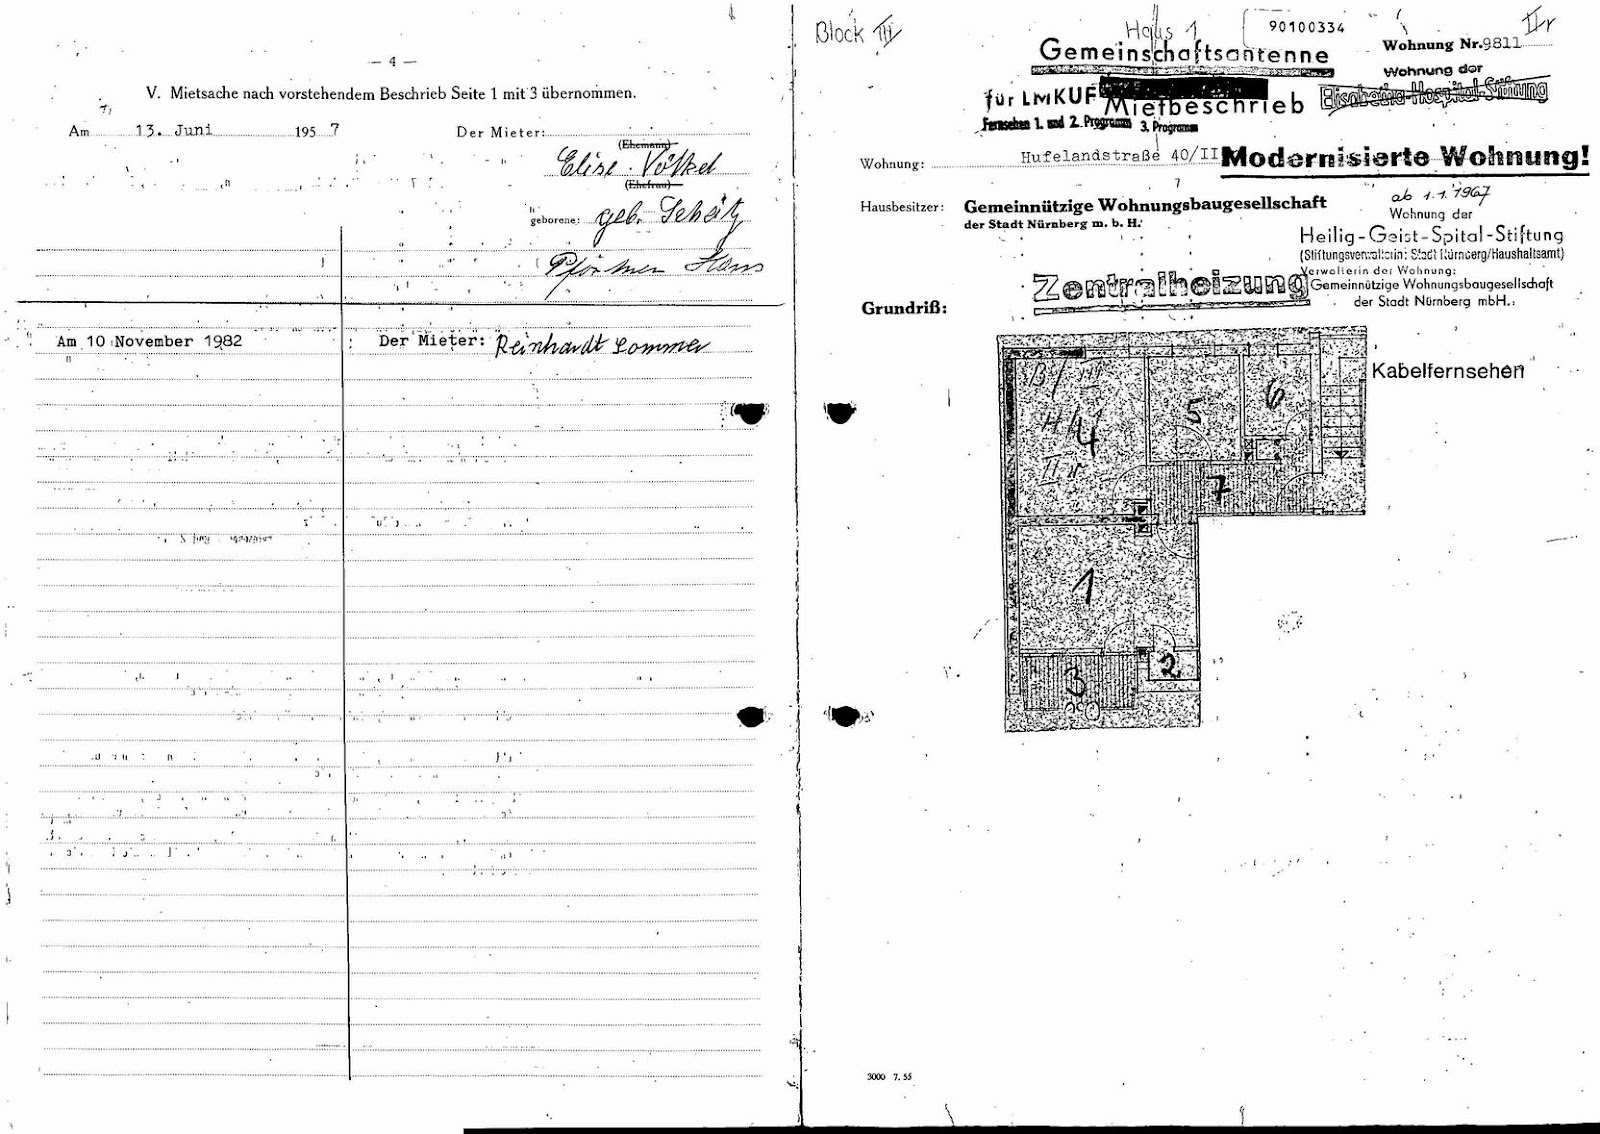 — 4 —
V. Mietsache nach vorstehendem Beschrieb Seite 1 mit 3 übernommen.
Am 13. Juni 1957 Der Mieter:
(Ehemann)
Elise Völkel
(Ehefrau)
geborene: geb. Schätz
Pförtner Hans
Am 10 November 1982 Der Mieter: Reinhardt Sommer
Block III
Haus 1
90100334
II r
Gemeinschaftsantenne
Wohnung Nr. 9811
Wohnung der
Elisabeth-Hospital-Stiftung
für LMKUF
Mietbeschrieb
Fernsehen 1. und 2. Programm 3. Programm
Wohnung: Hufelandstraße 40/II
Modernisierte Wohnung!
ab 1.1.1967
Hausbesitzer: Gemeinnützige Wohnungsbaugesellschaft
der Stadt Nürnberg m. b. H.
Wohnung der
Heilig-Geist-Spital-Stiftung
(Stiftungsverwalterin: Stadt Nürnberg/Haushaltsamt)
Verwalterin der Wohnung:
Gemeinnützige Wohnungsbaugesellschaft
der Stadt Nürnberg mbH.
Zentralheizung
Grundriß:
Kabelfernsehen
B/III
H/1
II r
4
5
6
7
1
2
3
3000 7. 55